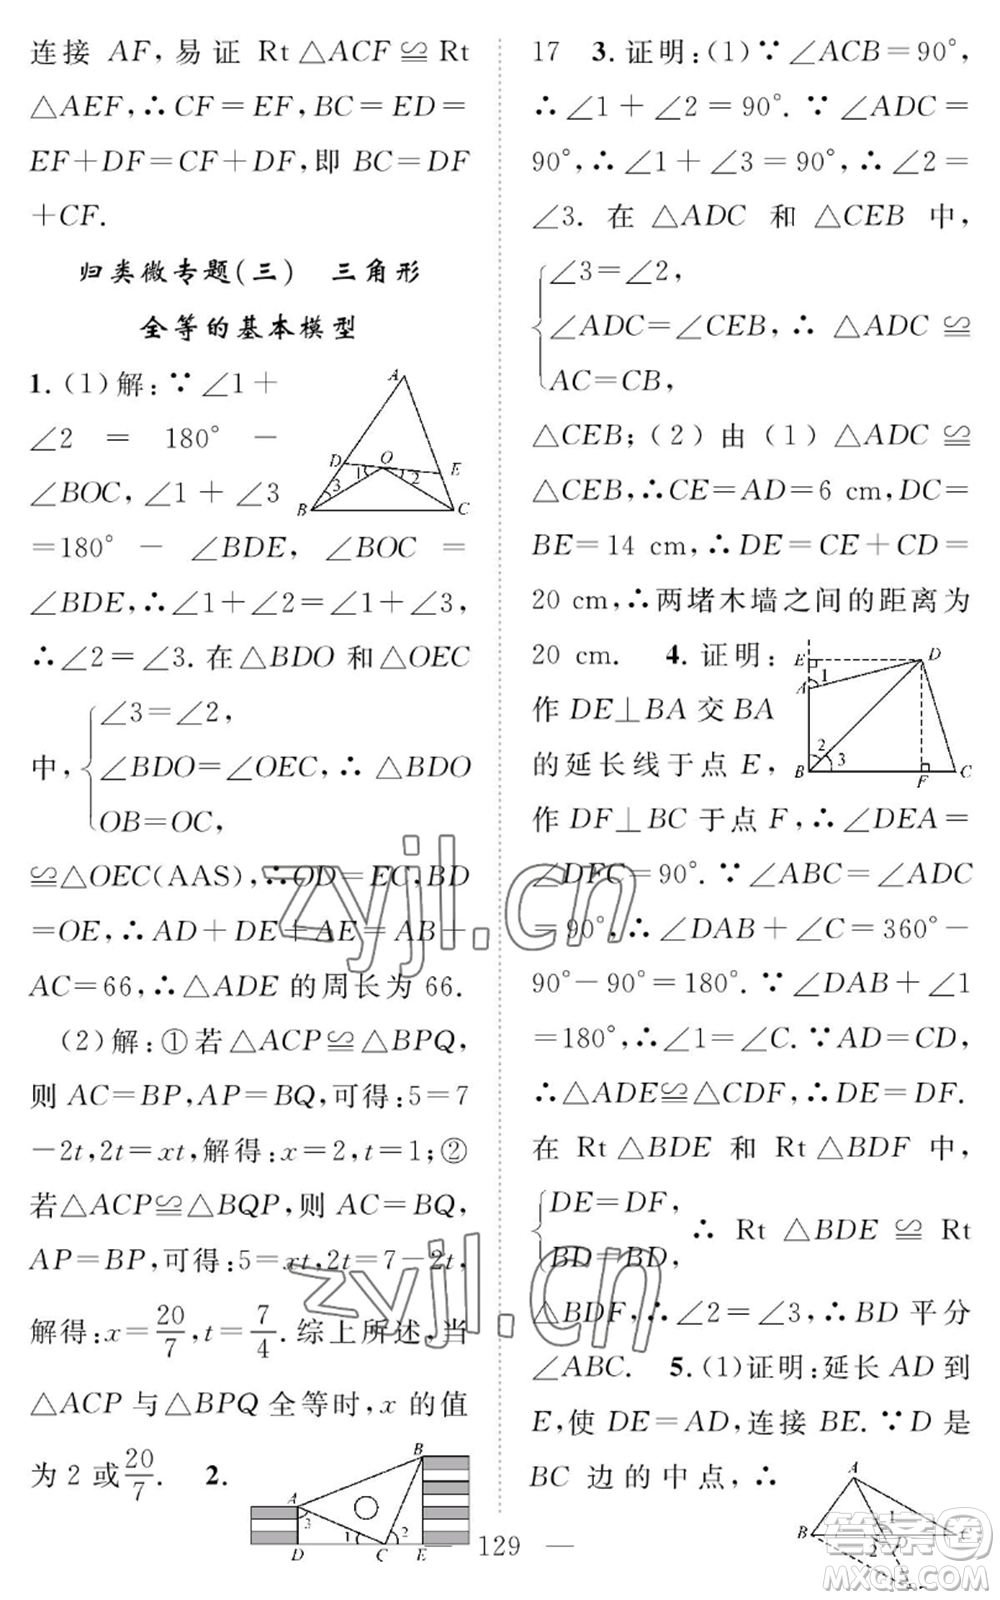 连接 AF,易证 Rt △ACF ≌ Rt
△AEF,∴CF=EF,BC=ED=
EF+DF=CF+DF,即 BC=DF
+CF.
归类微专题(三) 三角形
全等的基本模型
1. (1)解:∵∠1+
∠2 = 180° -
∠BOC,∠1+∠3
=180° - ∠BDE, ∠BOC =
∠BDE,∴∠1+∠2=∠1+∠3,
∴∠2=∠3. 在△BDO 和△OEC
∠3=∠2,
中, ∠BDO=∠OEC,∴△BDO
OB=OC,
≌△OEC(AAS),∴OD=EC,BD
=OE,∴AD+DE+AE=AB+
AC=66,∴△ADE 的周长为 66.
(2)解:①若△ACP≌△BPQ,
则 AC=BP,AP=BQ,可得:5=7
-2t,2t=xt,解得:x=2,t=1;②
若△ACP≌△BQP,则 AC=BQ,
AP=BP,可得:5=xt,2t=7-2t,
解得:x=20/7,t=7/4.综上所述,当
△ACP 与△BPQ 全等时,x 的值
为 2 或20/7. 2.
A
D O E
1 2
3
B C
B
A
3 1 2
D C E
17 3. 证明:(1)∵∠ACB=90°,
∴∠1+∠2=90°. ∵∠ADC=
90°,∴∠1+∠3=90°,∴∠2=
∠3. 在 △ADC 和 △CEB 中,
∠3=∠2,
∠ADC=∠CEB,∴ △ADC ≌
AC=CB,
△CEB;(2)由(1)△ADC≌
△CEB,∴CE=AD=6 cm,DC=
BE=14 cm,∴DE=CE+CD=
20 cm,∴两堵木墙之间的距离为
20 cm. 4. 证明:
作 DE⊥BA 交 BA
的延长线于点 E,
作 DF⊥BC 于点 F,∴∠DEA=
∠DFC=90°. ∵∠ABC=∠ADC
=90°,∴∠DAB+∠C=360°-
90°-90°=180°. ∵∠DAB+∠1
=180°,∴∠1=∠C.∵AD=CD,
∴△ADE≌△CDF,∴DE=DF.
在 Rt △BDE 和 Rt △BDF 中,
DE=DF,
∴ Rt △BDE ≌ Rt
BD=BD,
△BDF,∴∠2=∠3,∴BD 平分
∠ABC. 5. (1)证明:延长 AD 到
E,使 DE=AD,连接 BE. ∵D 是
BC 边的中点,∴
E D
A 1
2
3
B F C
A
1
B 2 D C
— 129 —
zyjl.cn
zyjl.cn
答案圈